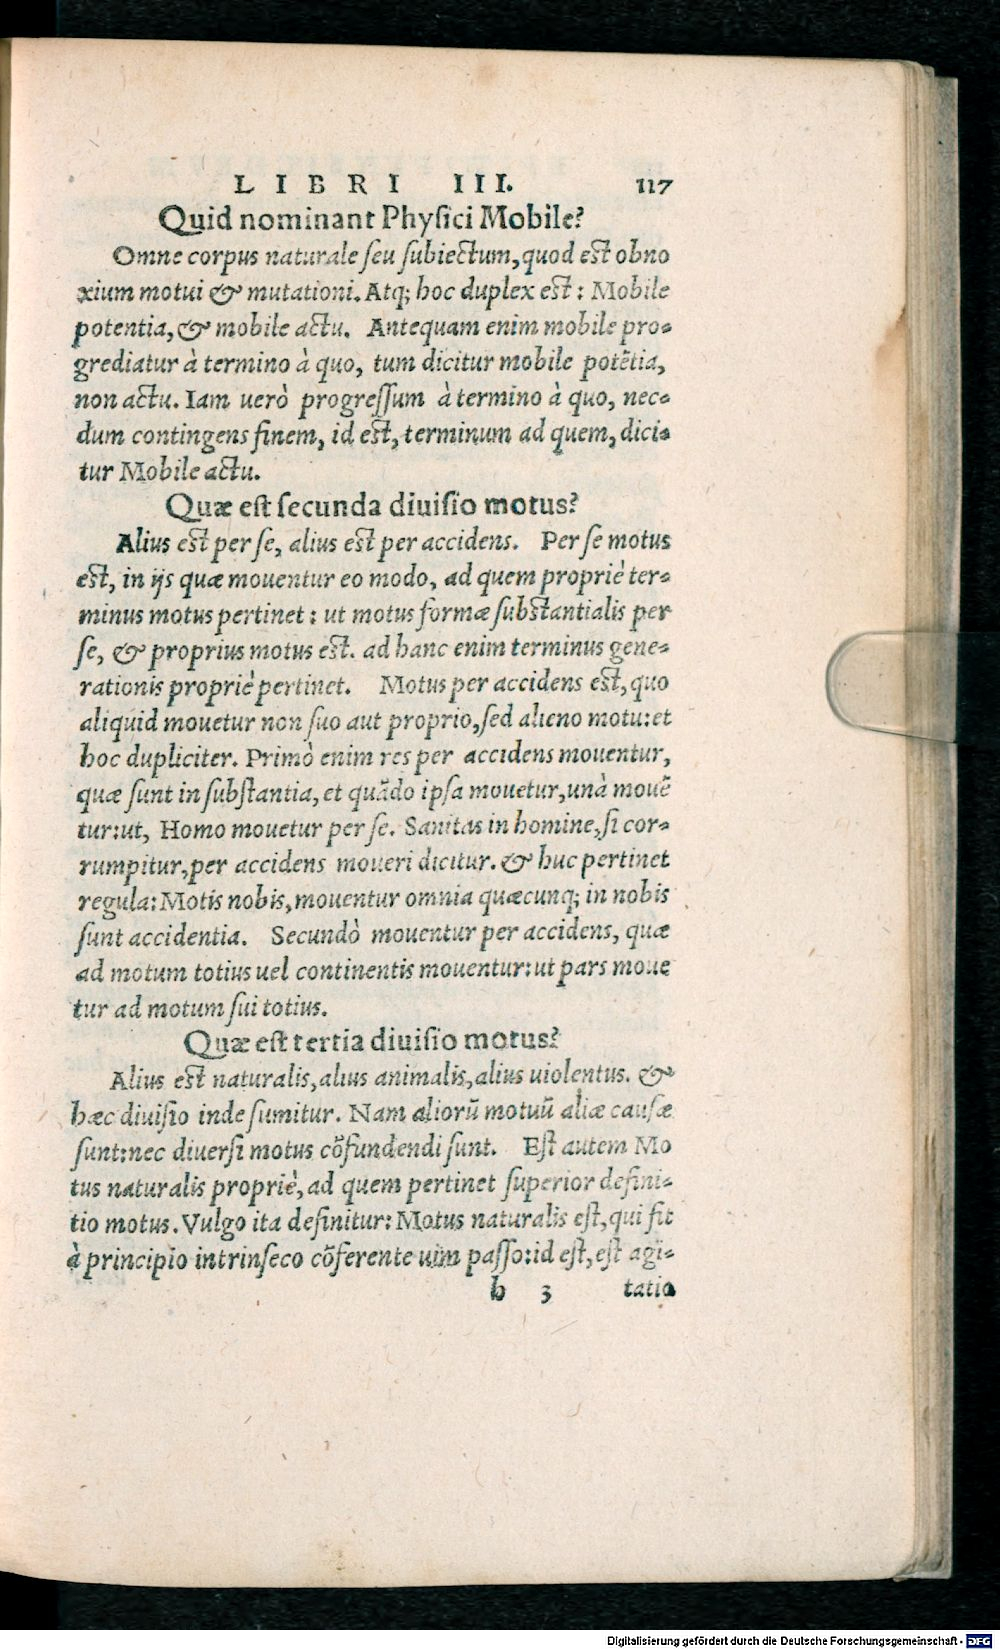 LIBRI III. 117
Quid nominant Physici Mobile?
Omne corpus naturale seu subiectum, quod est obno
xium motui & mutationi. Atq; hoc duplex est: Mobile
potentia, & mobile actu. Antequam enim mobile pro-
grediatur à termino à quo, tum dicitur mobile potẽtia,
non actu. Iam uerò progressum à termino à quo, nec-
dum contingens finem, id est, terminum ad quem, dici-
tur Mobile actu.
Quæ est secunda diuisio motus?
Alius est per se, alius est per accidens. Per se motus
est, in ijs quæ mouentur eo modo, ad quem propriè ter-
minus motus pertinet: ut motus formæ substantialis per
se, & proprius motus est. ad hanc enim terminus gene-
rationis propriè pertinet. Motus per accidens est, quo
aliquid mouetur non suo aut proprio, sed alieno motu: et
hoc dupliciter. Primò enim res per accidens mouentur,
quæ sunt in substantia, et quãdo ipsa mouetur, unà mouẽ
tur: ut, Homo mouetur per se. Sanitas in homine, si cor-
rumpitur, per accidens moueri dicitur. & huc pertinet
regula: Motis nobis, mouentur omnia quæcunq; in nobis
sunt accidentia. Secundò mouentur per accidens, quæ
ad motum totius uel continentis mouentur: ut pars moue
tur ad motum sui totius.
Quæ est tertia diuisio motus?
Alius est naturalis, alius animalis, alius uiolentus. &
hæc diuisio inde sumitur. Nam aliorũ motuũ aliæ causæ
sunt: nec diuersi motus cõfundendi sunt. Est autem Mo
tus naturalis propriè, ad quem pertinet superior defini-
tio motus. Vulgo ita definitur: Motus naturalis est, qui fit
à principio intrinseco cõferente uim passo: id est, est agi-
h 3 tatio
Digitalisierung gefördert durch die Deutsche Forschungsgemeinschaft - DFG